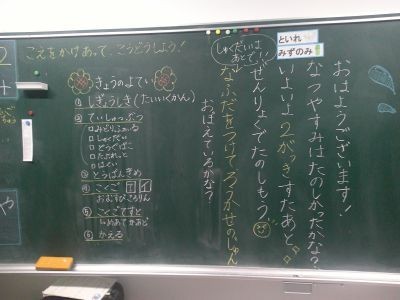 こえをかけあって、こうどうしよう!
といれ
みずのみ
おはようございます!
なつやすみはたのしかったかな?
いよいよ2がっきすたあと
ぜんりょくでたのしもう
しゅくだいは
あとで!!
なふだをつけてろうかせのじゅん
おぼえているかな?
きょうのよてい
① しぎょうしき(たいいくかん)
② ていしゅつぶつ
□みどりふぁいる
□しゅくだい
□どうぐばこ
□たぶれっと
□はくい
③ とうばんきめ
④ こくご 下 イ
おむすびころりん
⑤ こくごてすと
⑥ かえる
2
+
や